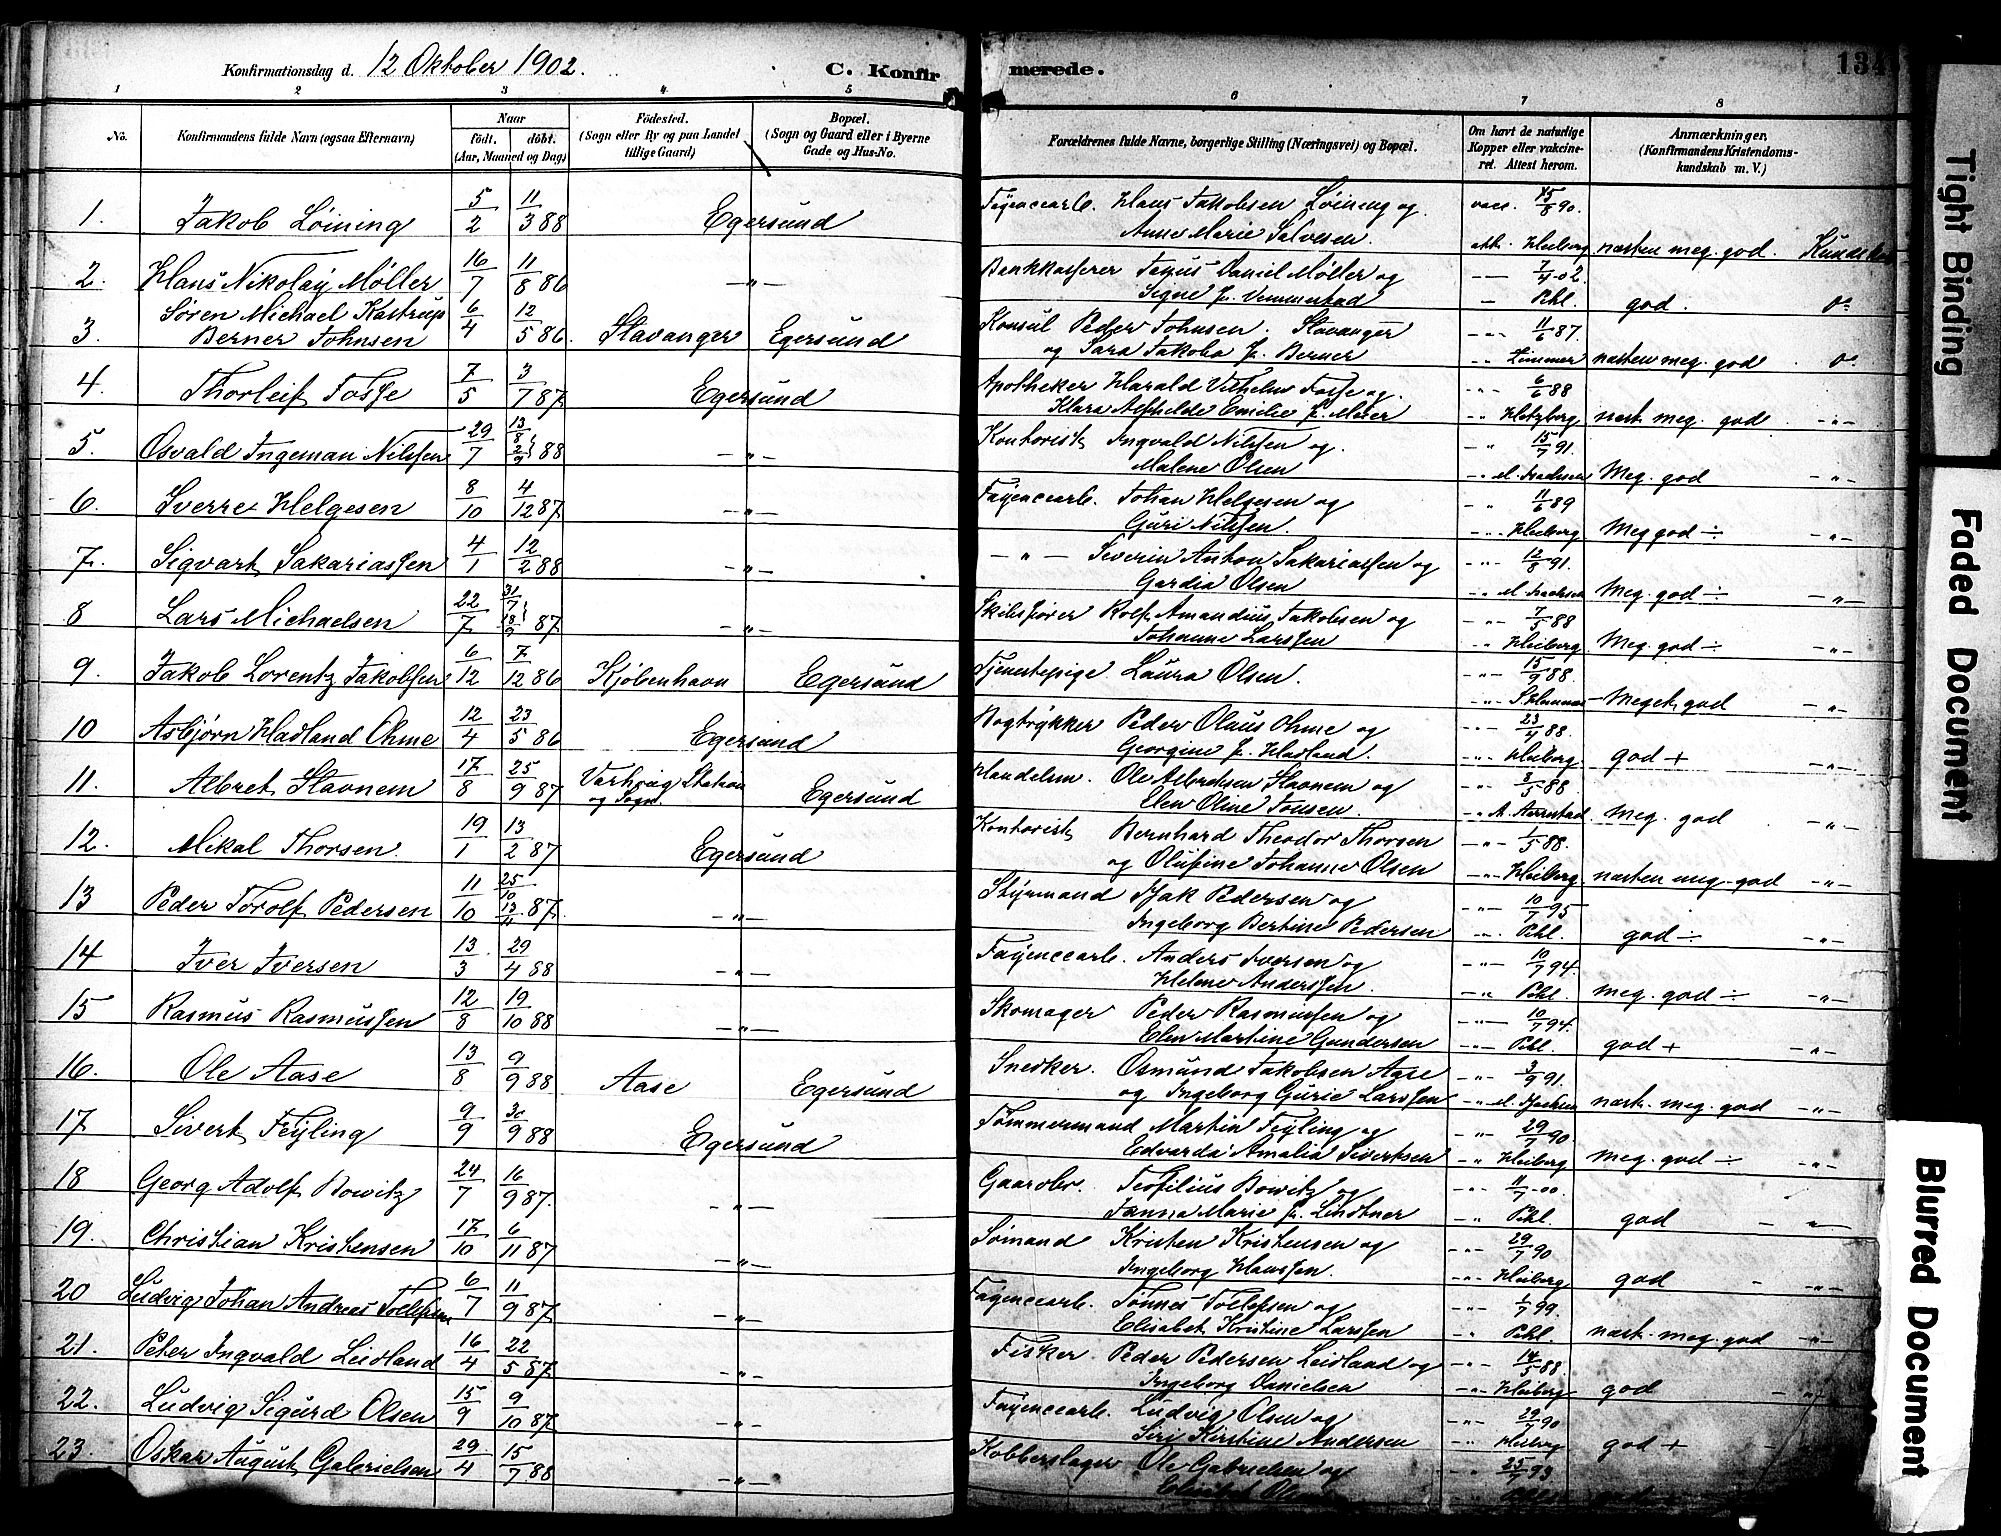 Konfirmationsdag d. 12 Oktober 1902. C. Konfirmerede. 134
1 2 3 4 5 6 7 8
No. Konfirmandens fulde Navn (ogsaa Efternavn) Naar født. døbt. (Aar, Maaned og Dag) Fødested. (Sogn eller By og paa Landet tillige Gaard) Bopæl. (Sogn og Gaard eller i Byerne Gade og Hus-No. Forældrenes fulde Navne, borgerlige Stilling (Næringsvei) og Bopæl. Om havt de naturlige Kopper eller vaccineret. Attest herom. Anmærkninger. (Konfirmandens Kristendomskundskab m. V.)
1. Jakob Løining 5/2 11/3 88 Egersund Fayencearb. Hans Jakobsen Løining og vacc. 15/8 90.
Anne Marie Salvesen. att. Heiberg næsten meg. god.
2. Hans Nikolay Møller 16/7 11/8 86 -"- Bankkasserer Daniel Møller og 7/4 02.
Signe f. Vemmestad Pihl. god. do
3. Søren Michael Kastrup 6/4 12/5 86. Stavanger Egersund Konsul Peder Johnsen. Stavanger -"- 11/6 87
Berner Johnsen og Sara Jakoba f. Berner næsten meg. god. do
4. Thorleif Fosse 7/5 3/7 87 Egersund Apotheker Harald Vilhelm Fosse og -"- 6/6 88
Klara Emilie f. Meier næst. meg. god -"-
5. Osvald Ingeman Nilssen 29/7 13/8 2/9 88 -"- Kontorist Ingvald Nilssen og -"- 15/7 91.
Malene Olsen Meg. god -"-
6. Sverre Helgesen 8/10 4/12 87. -"- Fayencearb. Johan Helgesen og -"- 11/6 89
Guri Nilssen. -"- Heiberg Meg god ÷ -"-
7. Sigvart Sakariassen 4/1 12/2 88 -"- -"- Severin Anton Sakariassen og -"- 12/8 91.
Gardia Olsen Meg. god ÷ -"-
8 Lars Michaelsen 22/7 31/7 18/9 87 -"- Skibsfører Rolf Amandius Jakobsen og -"- 7/5 88
Johanne Larssen -"- Heiberg Meg. god ÷ -"-
9. Jakob Lorentz Jakobsen 6/12 7/12 86 Kjøbenhavn Egersund Tjenestepige Laura Olsen. -"- 15/9 88.
Meget god -"-
10 Asbjørn Hadland Ohme 12/4 23/5 86 Egersund Bogtrykker Peder Olaus Ohme og -"- 23/4 88.
Georgine f. Hadland. -"- Heiberg god + -"-
11. Albret Stavnem 17/8 25/9 87 Varhaug Station og Sogn Egersund Handelsm. Ole Albretsen Stavnem og -"- 3/5 88.
Elen Oline Tonsen. meg. god -"-
12. Mikal Thorsen. 19/1 13/2 87 Egersund Kontorist Bernhard Theodor Thorsen -"- 1/5 88.
og Olufine Johanne Olsen -"- Heiberg. næsten meg. god -"-
13 Peder Torolf Pedersen 11/10 25/10 13/11 87. -"- Styrmand Isak Pedersen og -"- 10/7 95
Ingeborg Bertine Pedersen -"- Pihl. god ÷ -"-
14 Iver Iversen 13/3 29/4 88 -"- Fayencearb. Anders Iversen og -"- 10/7 94.
Helene Anderssen. -"- Pihl. meg. god ÷ -"-
15 Rasmus Rasmussen 12/8 19/10 88 -"- Skomager Peder Rasmussen og -"- 10/7 94.
Elen Martine Gundersen -"- Pihl. god + -"-
16. Ole Aase 13/8 9/9 88 Aase Egersund Snedker. Osmund Jakobsen Aase -"- 3/9 91.
og Ingeborg Gurie Larssen næst. meg. god -"-
17 Sivert Feyling 9/9 30/9 88 Egersund Tømmermand Martin Feyling og -"- 29/7 90
Edvarda Amalia Sivertsen -"- Heiberg meg. god ÷ -"-
18 Georg Adolf Bowitz 24/7 16/9 87. -"- Gaardbr. Teofilius Bowitz og -"- 11/7 00.
Fanna Marie f. Lindtner -"- Pihl. god -"-
19. Christian Kristensen 17/10 6/11 87 -"- Sømand Kristen Kristensen og -"- 29/7 90
Ingeborg Klaussen. -"- Heiberg god -"-
20 Ludvig Johan Andreas Tollefsen 6/7 11/9 87. -"- Fayencearb. Tønnes Tollefsen og -"- 1/7 99.
Elisabet Kristine Larssen -"- Pihl. næst. meg. god -"-
21. Peter Ingvald Leidland 16/4 22/5 87 -"- Fisker Peder Pedersen Leidland og -"- 14/5 88
Ingeborg Danielsen -"- Heiberg god -"-
22. Ludvig Sigurd Olsen 15/9 9/10 87. -"- Fayencearb. Ludvig Olsen og -"- 29/7 90
Siri Kirstine Andersen -"- Heiberg god +
23. Oskar August Gabrielsen 29/4 15/7 88 -"- Kobberslager Ole Gabrielsen og -"- 25/7 93
Tight Binding
Faded Document
Blurred Document